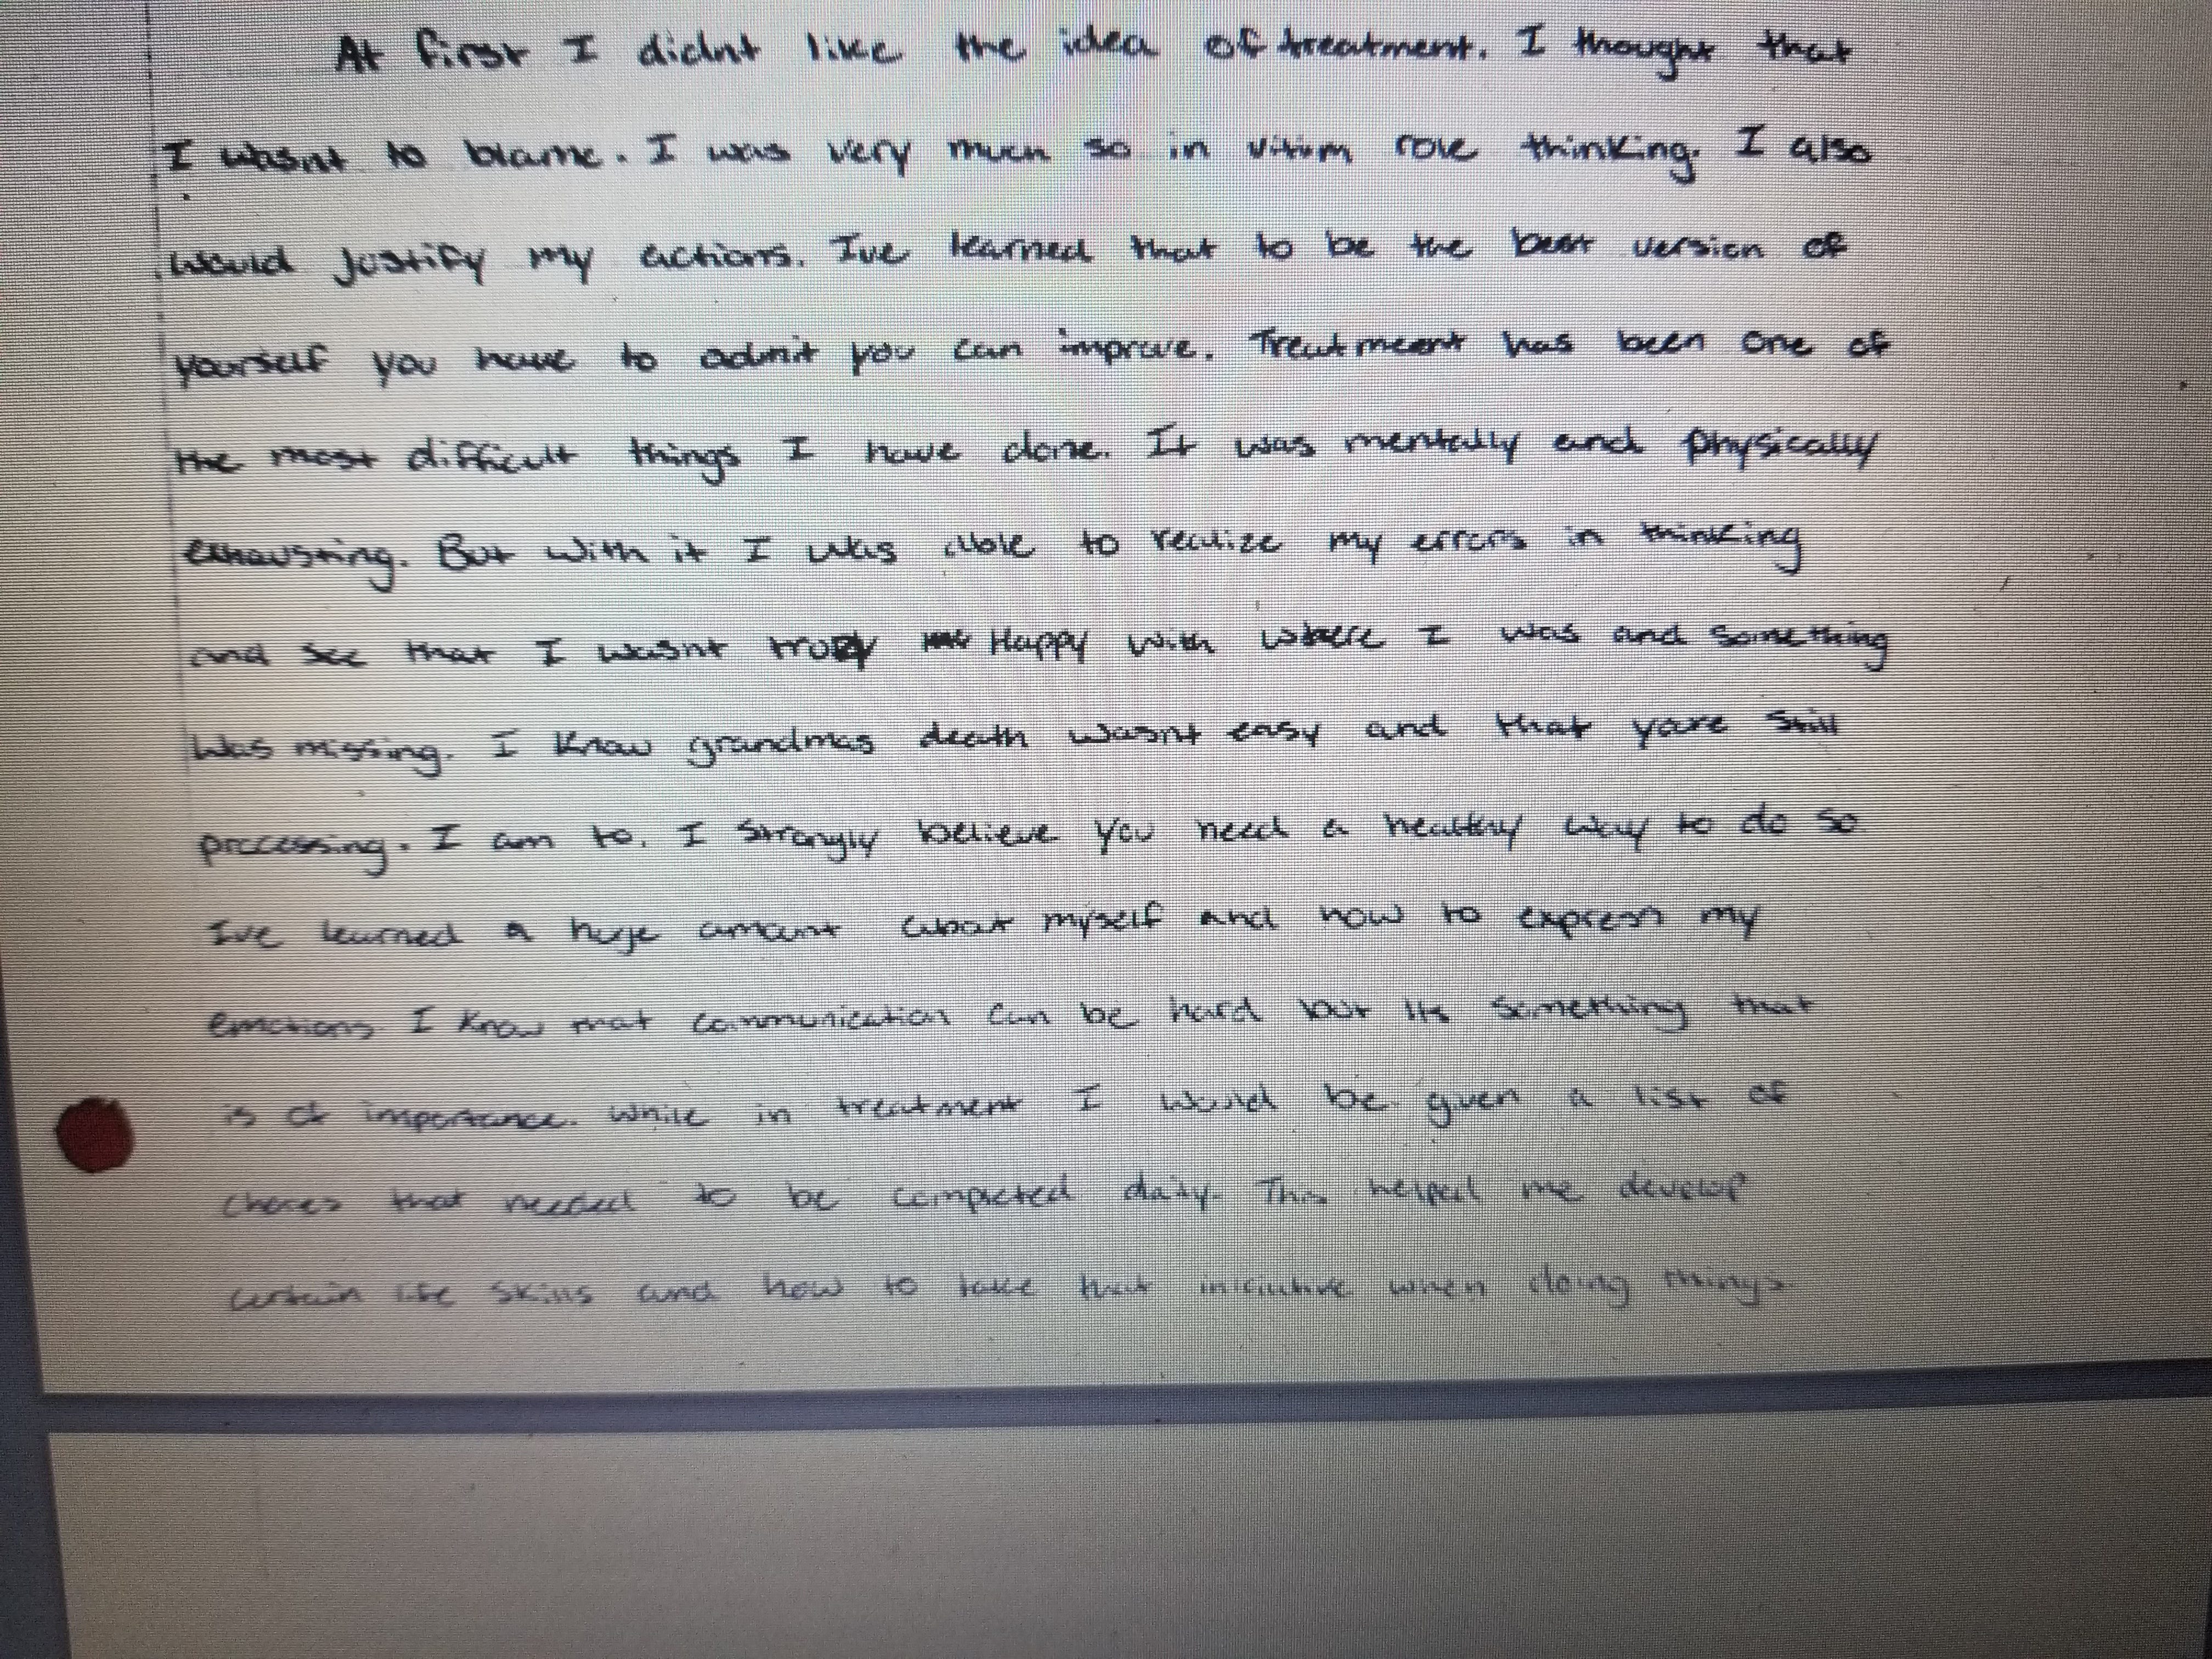 At first I didnt like the idea of treatment. I thought that
I wasnt to blame. I was very much so in vitim role thinking. I also
would justify my actions. Ive learned that to be the best version of
yourself you have to admit you can improve. Treatment has been one of
the most difficult things I have done. It was mentally and physically
exhausting. But with it I was able to realize my errors in thinking
and see that I wasnt truly Happy with where I was and something
was missing. I know grandmas death wasnt easy and that youre still
processing. I am to. I strongly believe you need a healthy way to do so
Ive learned a huge amount about myself and how to express my
emotions I know that communication can be hard but its something that
is of importance. While in treatment I would be given a list of
chores that needed to be completed daily. This helped me develop
certain life skills and how to take that iniciative when doing things.